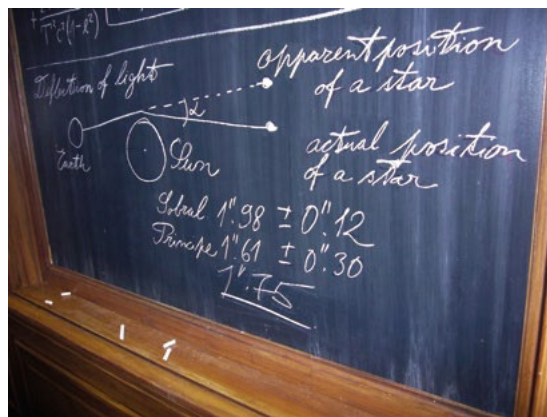 T²c²(1-e²)
Deflection of light
apparent position
of a star
α
Earth
Sun
actual position
of a star
Sobral 1".98 ± 0".12
Principe 1".61 ± 0".30
1".75